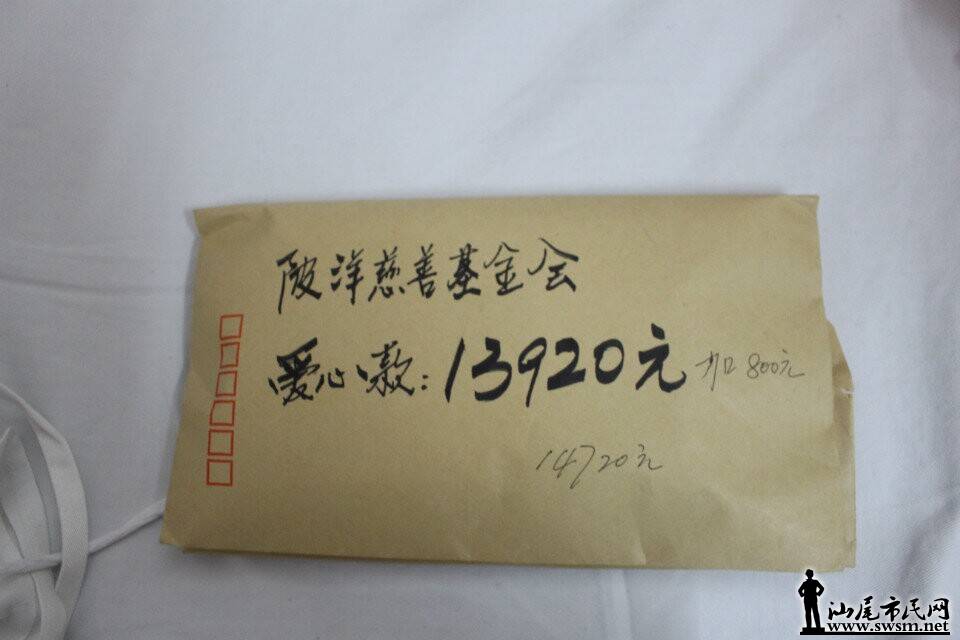 陂洋慈善基金会
爱心款：13920元 加800元
14720元
汕尾市民网
www.swsm.net